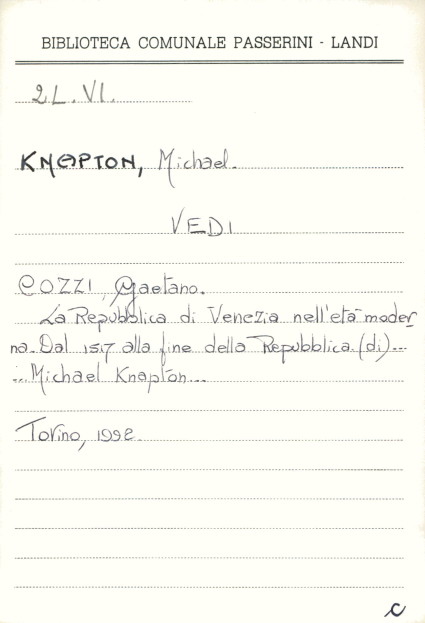 BIBLIOTECA COMUNALE PASSERINI - LANDI
2L.VI.
KNAPTON, Michael.
VEDI
COZZI, Gaetano.
La Repubblica di Venezia nell'età moder
na. Dal 1517 alla fine della Repubblica. (di)...
... Michael Knapton...
Torino, 1992.
C